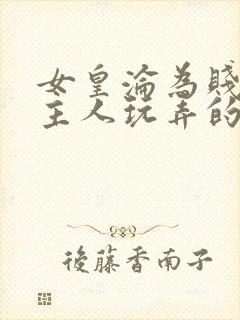 女皇淪為賤
主人玩弄的
後藤香南子